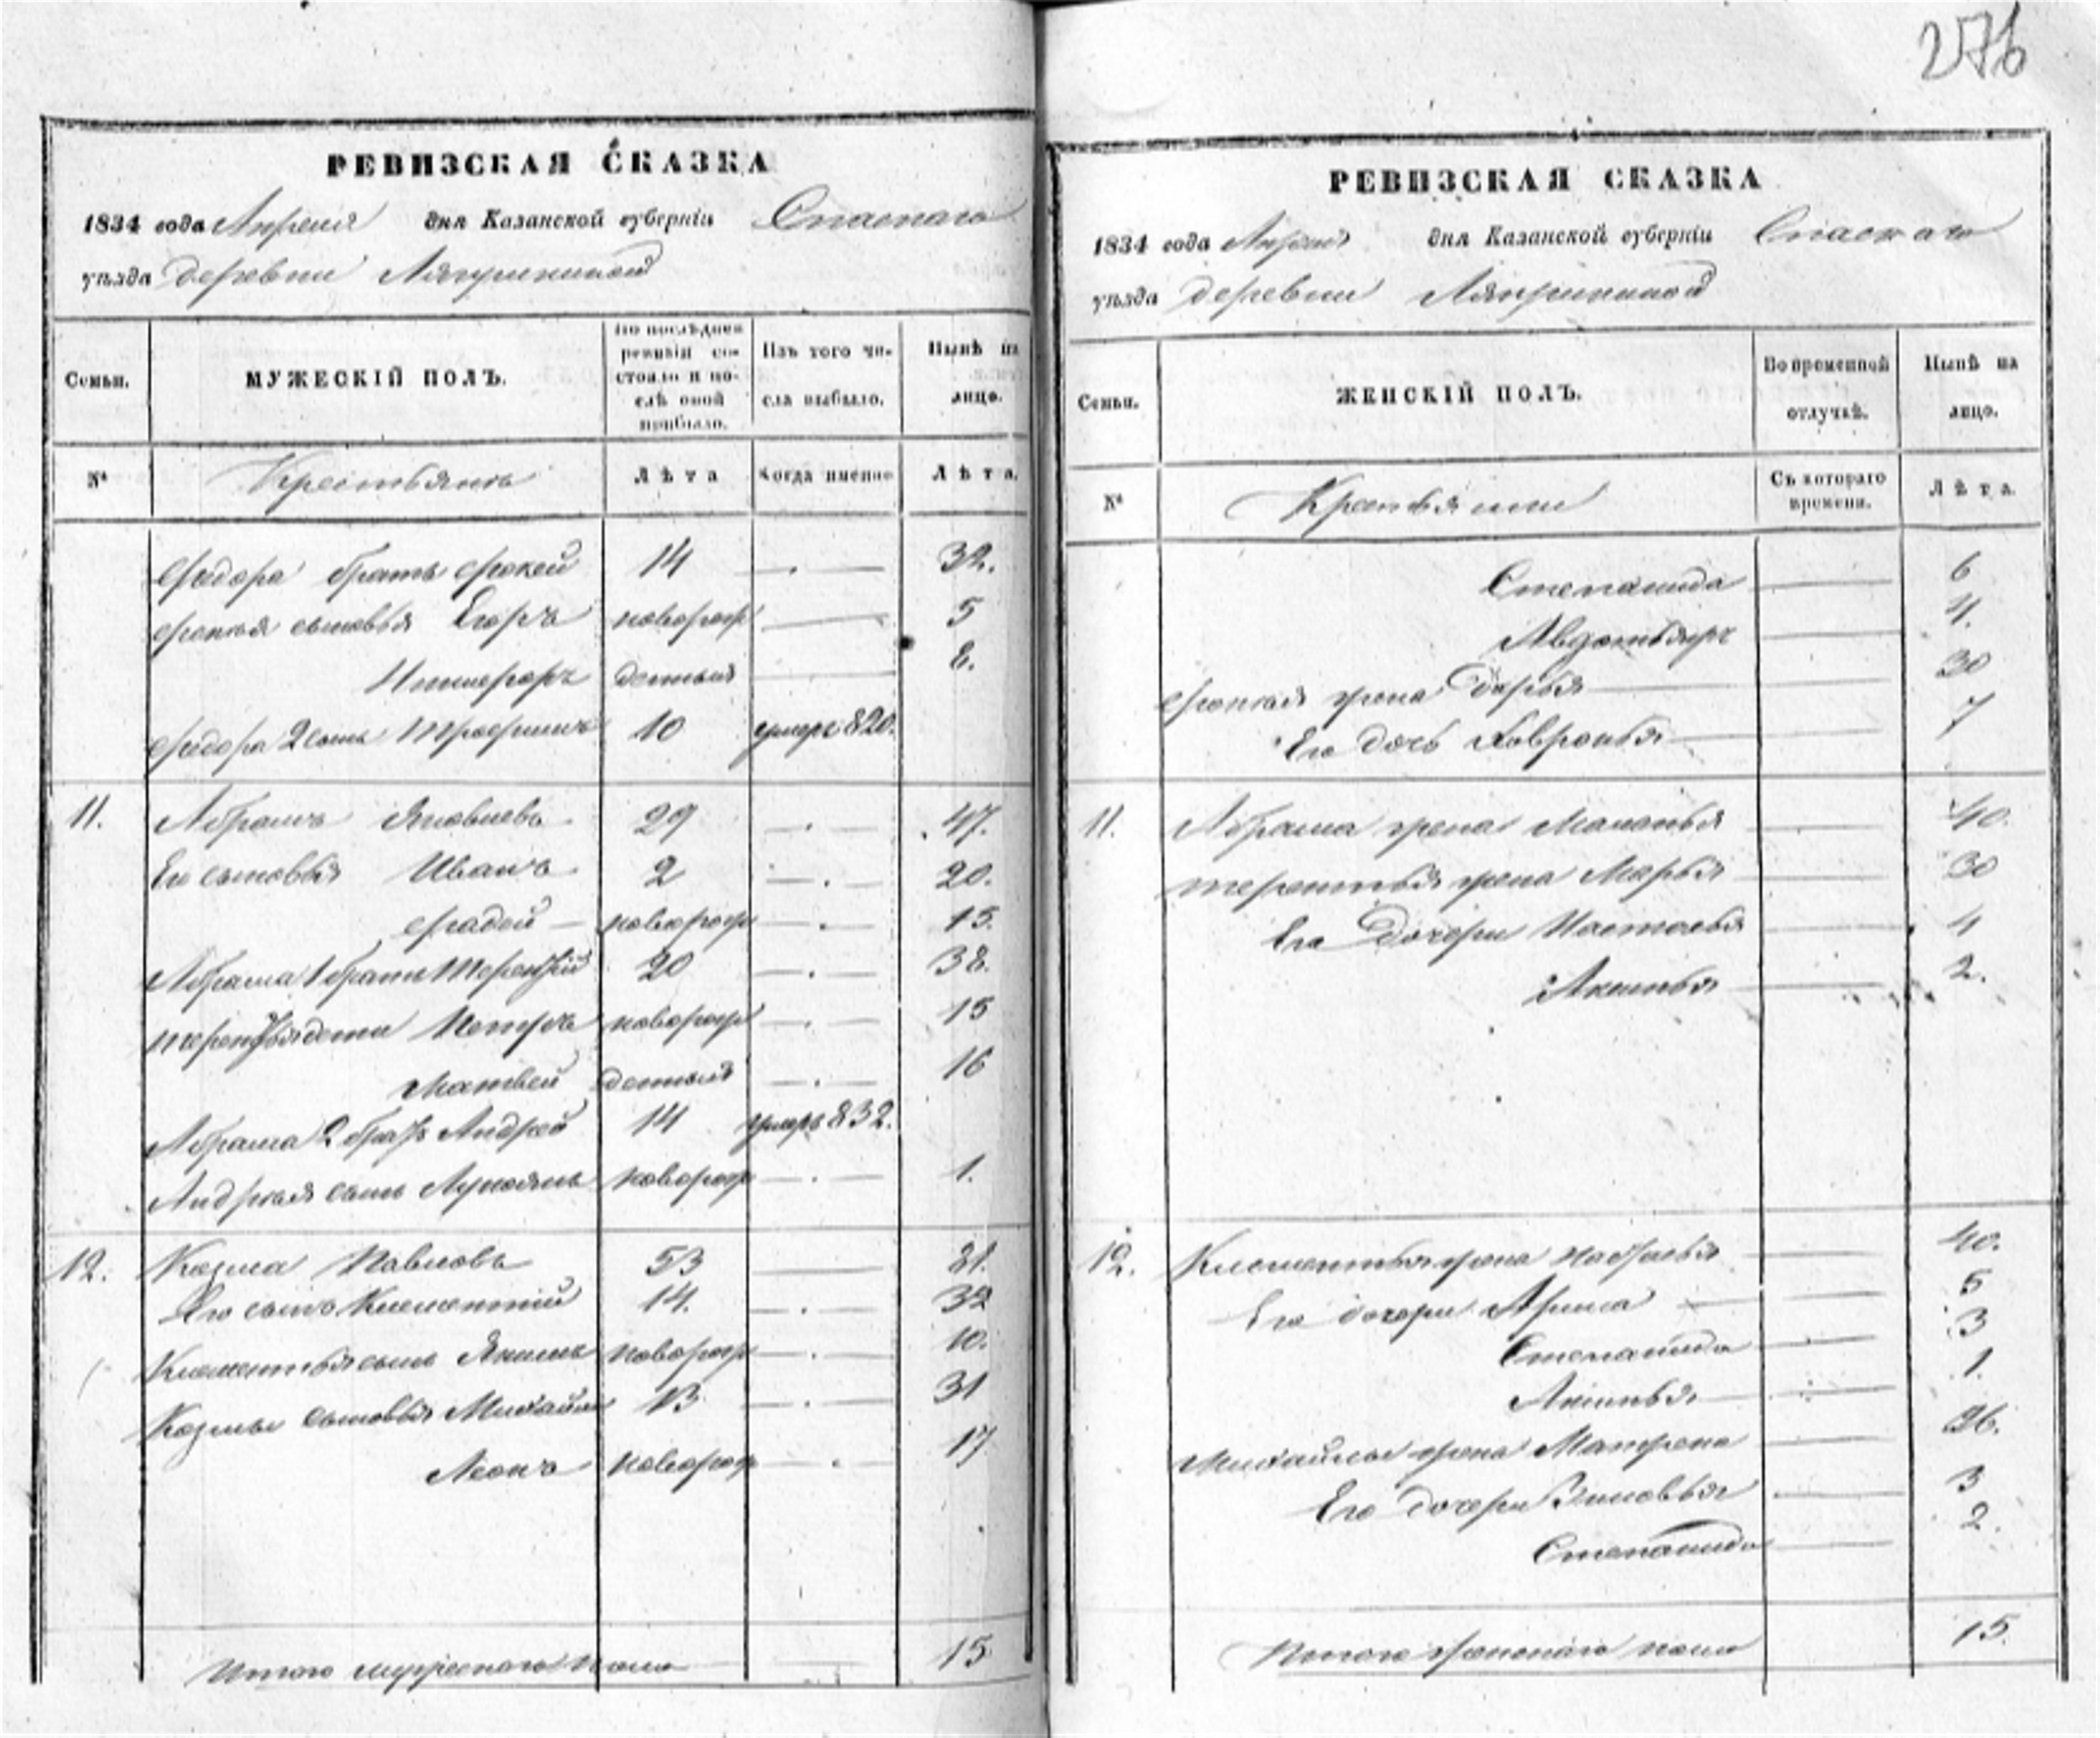 276
РЕВИЗСКАЯ СКАЗКА
1834 года Апреля дня Казанской губернiи Спаскаго
уѣзда деревни Лягушкиной
Семьи. МУЖЕСКIЙ ПОЛЪ. По послѣдней ревизiи состояло и послѣ оной прибыло. Изъ того числа выбыло. Нынѣ на лицо.
№ Крестьянъ Лѣта Когда именно Лѣта.
Фадора братъ Фокей 14 32.
Фокея сыновья Егоръ новорож 5
Никифоръ денныя 8.
Фадора 2 сынъ Трофимъ 10 умеръ 820.
11. Абрамъ Яковлевъ 29 47.
Его сыновья Иванъ 2 20.
Фадей новорож 15.
Абрама 1 братъ Терентiй 20 38.
Терентья дети Петръ новорож 15
Матвей денныя 16
Абрама 2 братъ Андрей 14 умеръ 832.
Андрея сынъ Лукоянъ новорож 1.
12. Козма Павловъ 53 21.
Его сынъ Клементiй 14. 32
Клементья сынъ Якимъ новорож 10.
Козмы сыновья Михайла 13 31
Леонъ новорож 17
Итого мужескаго пола 15
РЕВИЗСКАЯ СКАЗКА
1834 года Апреля дня Казанской губернiи Спаскаго
уѣзда деревни Лягушкиной
Семьи. ЖЕНСКIЙ ПОЛЪ. Во временной отлучкѣ. Нынѣ на лицо.
№ Крестьянки Съ котораго времени. Лѣта.
Степанида 6
Авдотья 4.
Фокея жена Дарья 30
Его дочь Ховронья 7
11. Абрама жена Маланья 40.
Терентья жена Марья 30
Его дочери Настасья 4
Акилина 2.
12. Клементья жена Настасья 40.
Его дочери Арина 5
Степанида 3
Аксинья 1.
Михайлы жена Матрена 26.
Его дочери Зиновья 3
Степанида 2.
Итого женскаго пола 15.